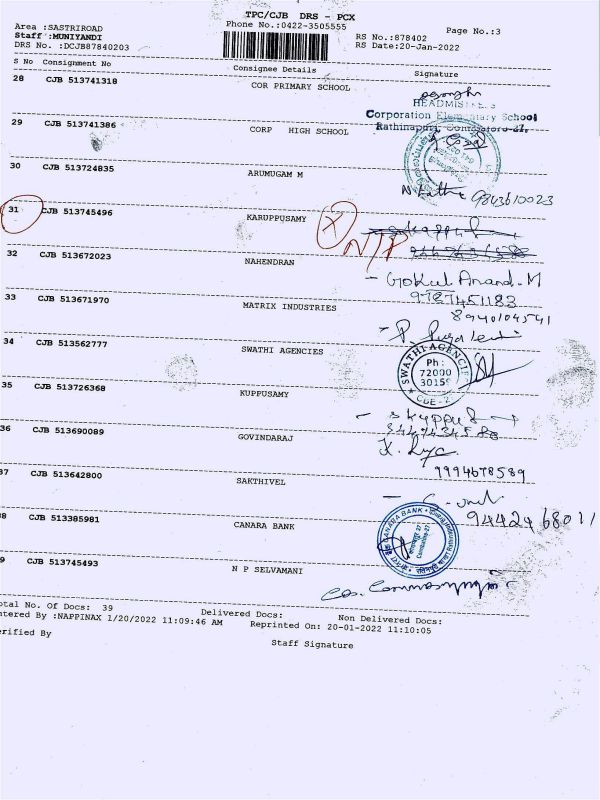 TPC/CJB DRS - PCX
Area :SASTRIROAD Phone No.:0422-3505555 Page No.:3
Staff :MUNIYANDI RS No.:878402
DRS No. :DCJB87840203 RS Date:20-Jan-2022
S No Consignment No Consignee Details Signature
28 CJB 513741318 COR PRIMARY SCHOOL
HEADMISTRESS
Corporation Elementary School
Rathinapuri, Coimbatore-27.
29 CJB 513741386 CORP HIGH SCHOOL
30 CJB 513724835 ARUMUGAM M
9843610023
31 CJB 513745496 KARUPPUSAMY X NTP
32 CJB 513672023 NAHENDRAN
- Gokul Anand.M
9787451183
33 CJB 513671970 MATRIX INDUSTRIES
8940104541
34 CJB 513562777 SWATHI AGENCIES
SWATHI AGENCIES
Ph :
72000
30159
CBE - 27
35 CJB 513726368 KUPPUSAMY
36 CJB 513690089 GOVINDARAJ
9994678589
37 CJB 513642800 SAKTHIVEL
38 CJB 513385981 CANARA BANK
CANARA BANK
9 CJB 513745493 N P SELVAMANI
otal No. Of Docs: 39 Delivered Docs: Non Delivered Docs:
ntered By :NAPPINAX 1/20/2022 11:09:46 AM Reprinted On: 20-01-2022 11:10:05
erified By Staff Signature